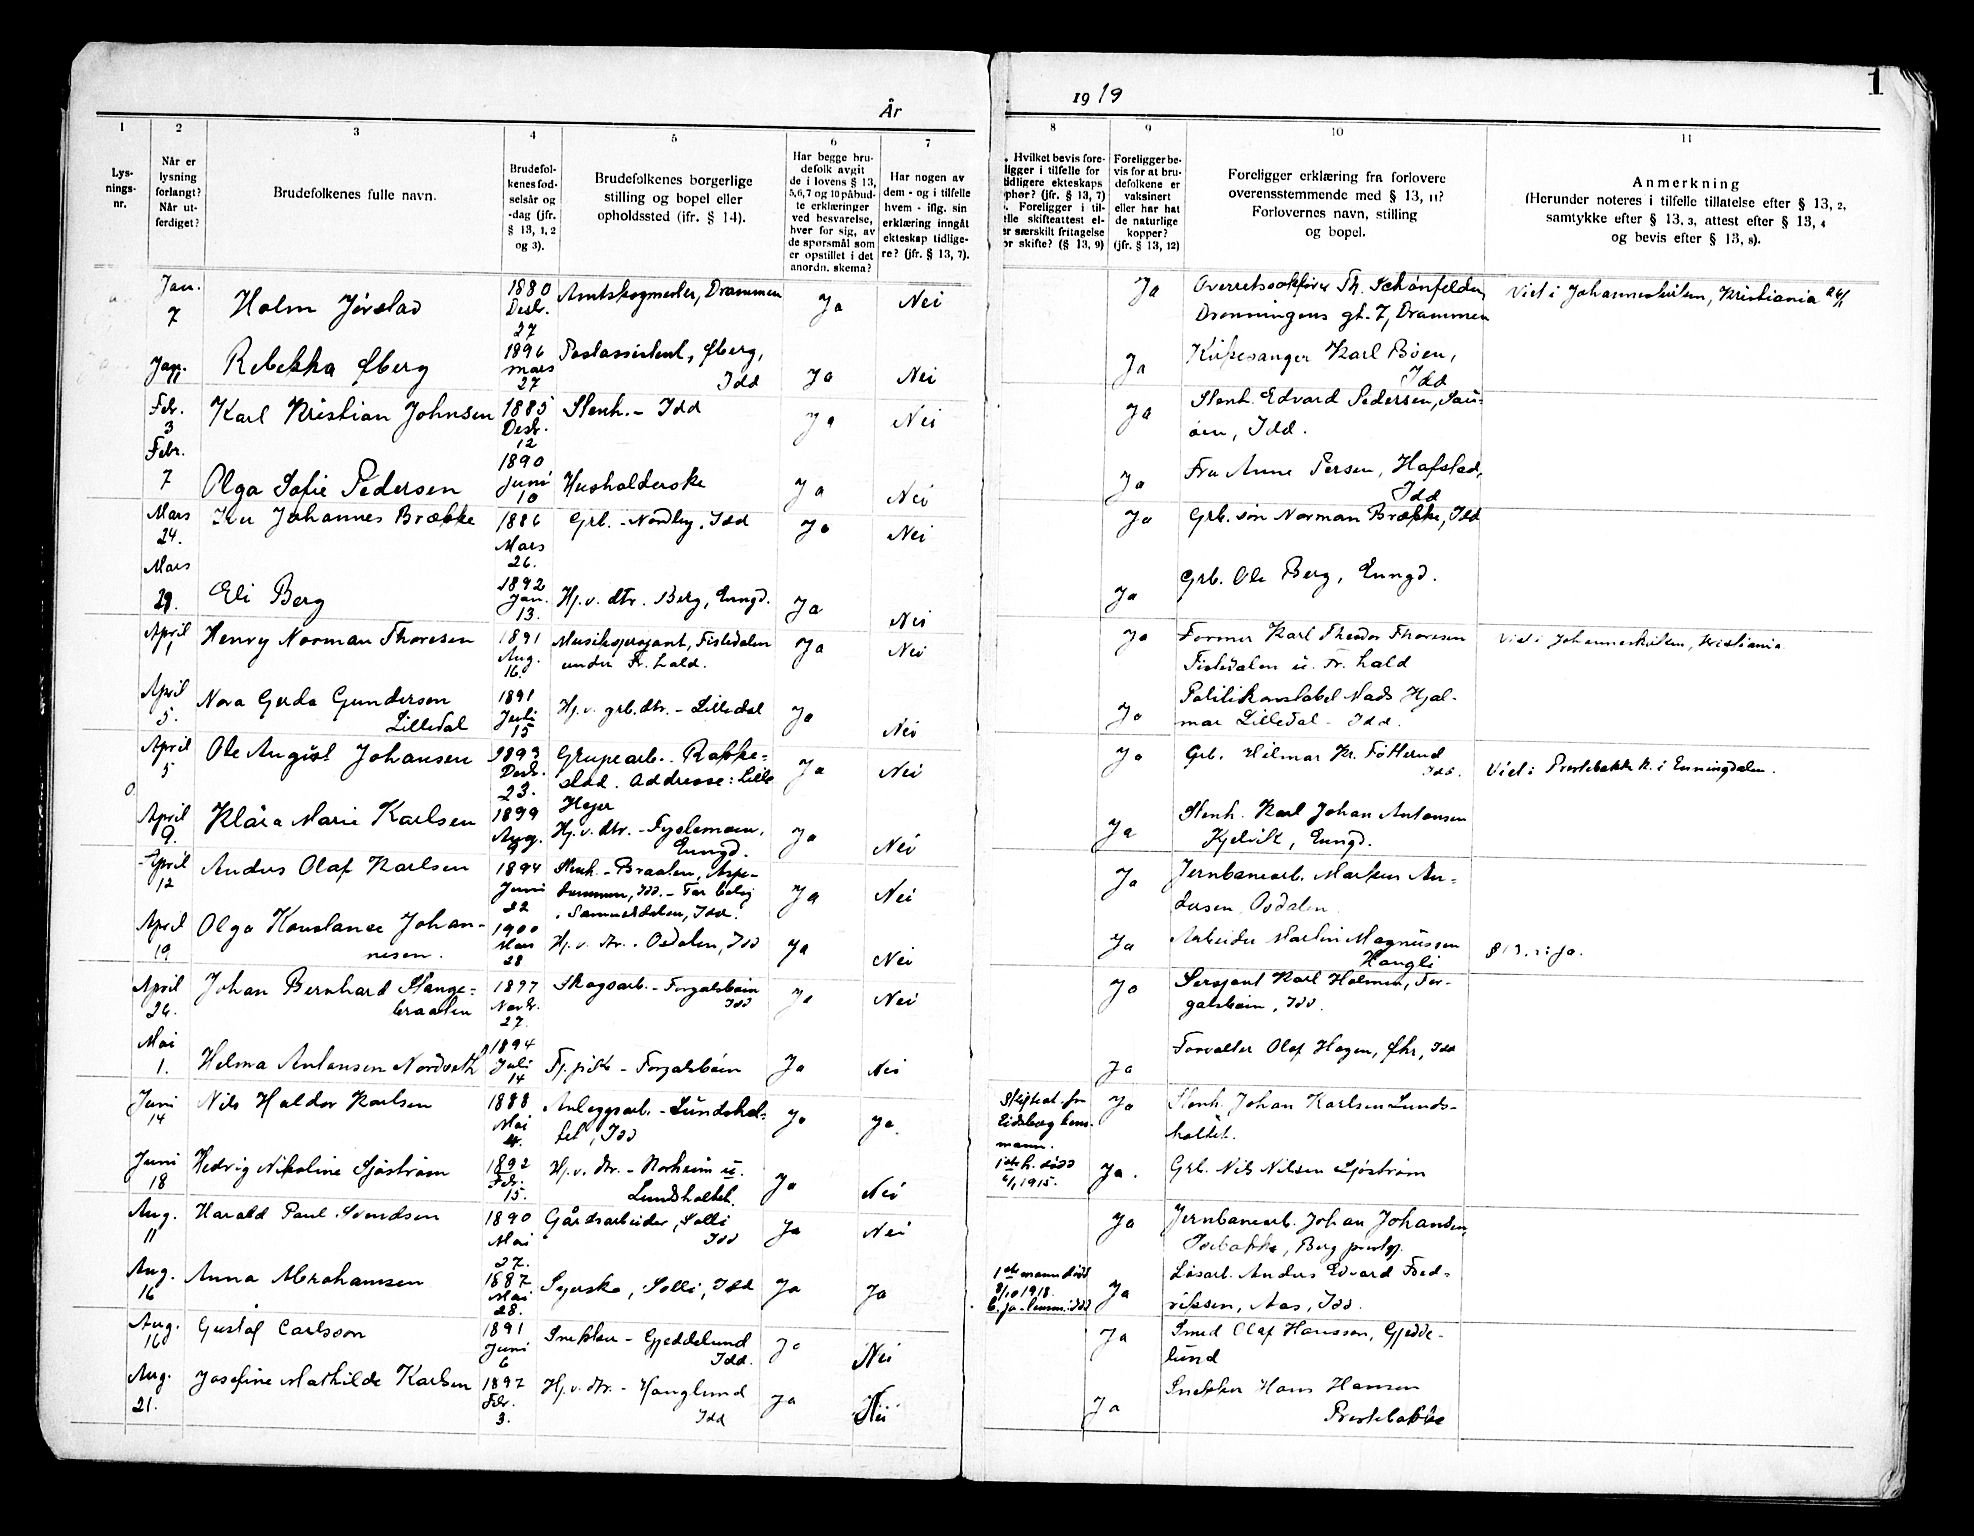 1
År
1919
1
2
3
4
5
6
7
8
9
10
11
Lys-
nings-
nr.
Når er
lysning
forlangt?
Når ut-
ferdiget?
Brudefolkenes fulle navn.
Brudefol-
kenes fød-
selsår og
-dag (jfr.
§ 13, 1, 2
og 3).
Brudefolkenes borgerlige
stilling og bopel eller
opholdssted (ifr. § 14).
Har begge bru-
defolk avgit
de i lovens § 13,
5,6,7 og 10 påbud-
te erklæringer
ved besvarelse,
hver for sig, av
de spørsmål som
er opstillet i det
anordn. skema?
Har nogen av
dem - og i tilfelle
hvem - iflg. sin
erklæring inngåt
ekteskap tidlige-
re? (jfr. § 13, 7).
Hvilket bevis fore-
ligger i tilfelle for
tidligere ekteskaps
ophør? (jfr. § 13, 7)
Foreligger i til-
felle skifteattest el-
er særskilt fritagelse
for skifte? (§ 13, 9)
Foreligger be-
vis for at bru-
defolkene er
vaksinert
eller har hat
de naturlige
kopper?
(jfr. § 13, 12)
Foreligger erklæring fra forlovere
overensstemmende med § 13, 11?
Forlovernes navn, stilling
og bopel.
Anmerkning
(Herunder noteres i tilfelle tillatelse efter § 13, 2,
samtykke efter § 13, 3, attest efter § 13, 4
og bevis efter § 13, 8).
Jan.
7
Holm Jørstad
1880
Desbr.
27
Amtskogmester, Drammen
Ja
Nei
Ja
Overretssakfører Th. Schønfelder,
Dronningens gt. 7, Drammen
Viet i Johanneskirken, Kristiania
Jan.
Rebekka Øberg
1896
mars
27
Postassistent, Øberg,
Idd
Ja
Nei
Ja
Kirkesanger Karl Bøen,
Idd
Febr.
3
Karl Kristian Johnsen
1885
Desbr.
12
Stenh. - Idd
Ja
Nei
Ja
Stenh. Edvard Pedersen,
Idd.
Febr.
7
Olga Sofie Pedersen
1890
Juni
10
Husholderske
Ja
Nei
Ja
Fru Anne Persen, Hafstad,
Idd
Mars
24.
Johannes Brække
1886
Mars
26.
Grb. - Nordby, Idd
Ja
Nei
Ja
Grb. søn Norman Brække, Idd
Mars
29.
Eli Berg
1892
Jan.
13.
Hj.v. dtr. Berg, Enngd.
Ja
Nei
Ja
Grb. Ole Berg, Enngd.
April
1
Henry Norman Thoresen
1891
Aug.
16.
Musiksersjant, Tistedalen
under Fr. hald.
Ja
Nei
Ja
Former Karl Theodor Thoresen
Tistedalen u. Fr. hald
Viet i Johanneskirken, Kristiania
April
5.
Nora Gerda Gundersen
Lilledal
1891
Juli
15
Hj.v. grb.dtr. - Lilledal
Ja
Nei
Ja
Politikonstabel Mads Hjal-
mar Lilledal - Idd.
April
5
Ole August Johansen
1893
Desbr.
23.
Grupearb. Rakke-
stad. Addresse: Lille
Hojer
Ja
Nei
Ja
Grb. Hilmar Kr. Folkerud
Idd.
Viet i Prestebakke k. i Enningdalen.
April
9.
Klara Marie Karlsen
1899
Aug.
Hj.v. dtr. -
Enngd.
Ja
Nei
Ja
Stenh. Karl Johan Antonsen
Kjelvik, Enngd.
April
12
Anders Olaf Karlsen
1894
Juni
22
Stenh. - Braaten, Aspe-
Idd. - Far bolig
Sameldalen, Idd.
Ja
Nei
Ja
Jernbanearb. Markus An-
dersen, Osdalen
April
19
Olga Konstance Johan-
nesen.
1900
Mars
28
Hj.v. dtr. - Osdalen, Idd
Ja
Nei
Ja
Arbeider Martin Magnussen
Hangli
April
26.
Johan Bernhard Stange-
braaten
1897
Novbr.
27.
Skogsarb. - Torgalsbøen
Idd
Ja
Nei
Ja
Sersjant Karl Holmen, Tor-
galsbøen, Idd.
Mai
1.
Helma Antonsen Nordseth
1894
Juli
14
Tj.pike - Torgalsbøen
Ja
Nei
Ja
Forvalter Olaf Hagen, Øhr, Idd
Juni
14
Nils Haldor Karlsen
1888
Mai
4.
Anleggsarb. - Lundshol-
tet, Idd
Ja
Ja.
Skifteat. fra
Eidsberg lens-
mann.
Ja
Stenh. Johan Karlsen Lunds-
holtet.
Juni
18
Hedvig Nikoline Sjøstrøm
1892
Febr.
15.
Hj.v. dtr. - Norheim u.
Lundsholtet.
Ja
Nei
1ste h. død
1915.
Ja.
Grb. Nils Nilsen Sjøstrøm
Aug.
11
Harald Paul Svendsen
1890
Mai
27.
Gårdsarbeider, Solli
Idd
Ja
Nei
Ja
Jernbanearb. Johan Johansen,
Isebakke, Berg prestgj.
Aug.
16
Anna Abrahamsen
1887
Mai
28.
Syerske, Solli, Idd
Ja
Ja
1ste mann død
3/10 1918.
Ja
Løsarb. Anders Edvard Fred-
riksen, Aas, Idd.
Aug.
16
Gustaf Carlsson
1891
Juni
6
Snekker - Gjeddelund
Idd.
Ja
Nei
Ja
Smed Olaf Hansson, Gjedde-
lund
Aug.
21.
Josefine Mathilde Karlsen
1897
Febr.
3.
Hj.v. dtr. - Hauglund
Idd
Ja
Nei
Ja
Snekker Hans Hansen
Prestebakke